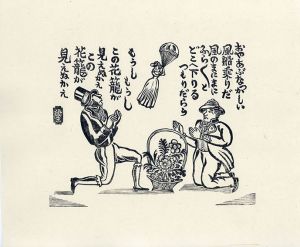 おやあぶなつかしい
風船乗りだ
風のまにまに
ふら〱と
どこへ下りる
つもりだらう
もうし もうし
この花籠が
見えぬかえ
この
花籠が
見えぬかえ